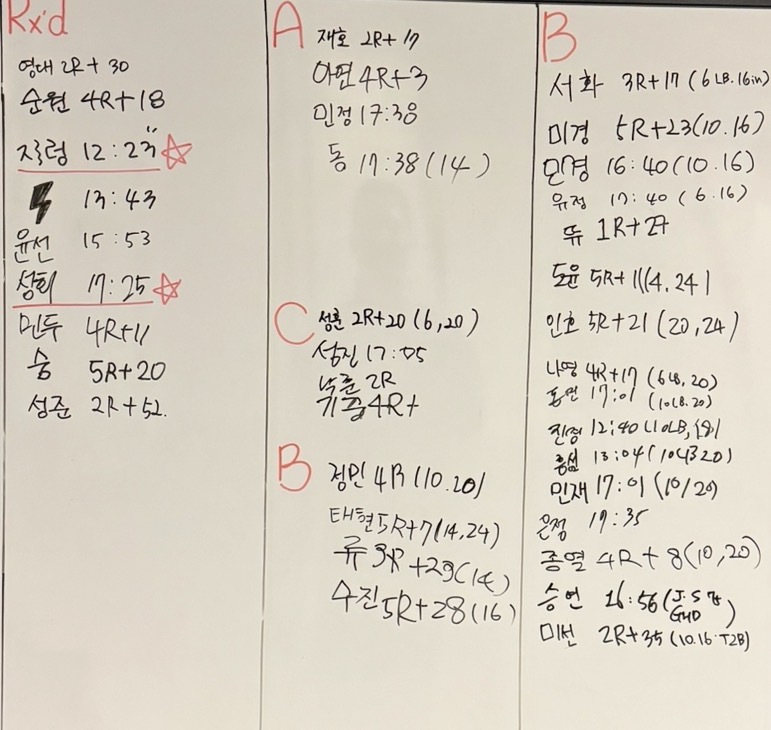 Rx'd
영대 2R+30
순원 4R+18
지령 12:23"
13:43
윤선 15:53
성희 17:25
민두 4R+11
승 5R+20
성준 2R+52.
A
재호 2R+17
아련 4R+3
민정 17:38
동 17:38(14)
C
성훈 2R+20(6,20)
성진 17:05
2R
4R+
B
정민 4R(10.20)
태현 5R+7(14,24)
류 3R+29(14)
수진 5R+28(16)
B
서화 3R+17(6LB.16in)
미경 5R+23(10.16)
민경 16:40(10.16)
유정 17:40(6.16)
뜌 1R+27
도윤 5R+11(14.24)
인호 5R+21(20,24)
나영 4R+17(6LB,20)
동연 17:01(10LB.20)
진경 12:40(10LB,18)
13:04(10LB20)
민재 17:01(10/20)
은정 17:35
종열 4R+8(10,20)
승언 16:56(J.S
GHD)
미선 2R+35(10.16.T2B)